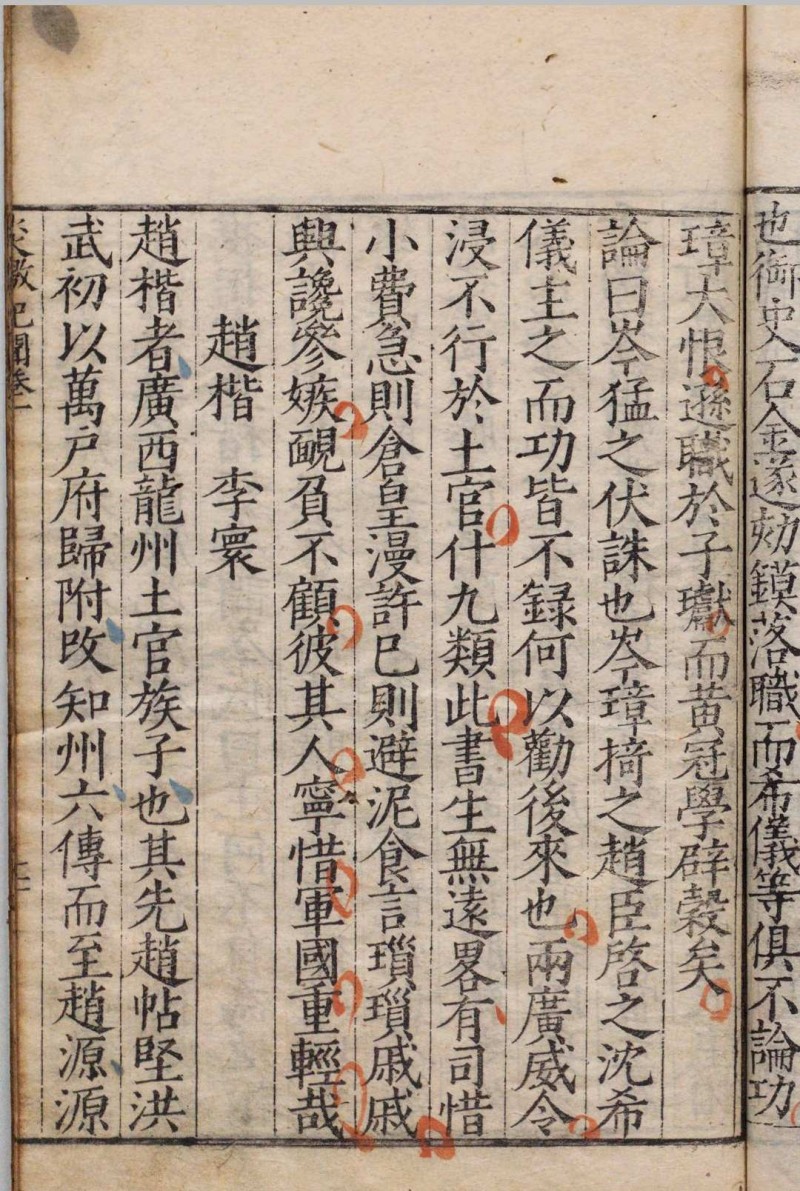 也御史石金遂劾鏌落職而希儀等俱不論功
璋大恨遜職於子瓛而黃冠學辟穀矣
論曰岑猛之伏誅也岑璋掎之趙臣啓之沈希
儀主之而功皆不錄何以勸後來也兩廣威令
浸不行於土官什九類此書生無遠畧有司惜
小費急則倉皇漫許已則避泥食言瑣瑣戚戚
興讒參嫉靦負不顧彼其人寧惜軍國重輕哉
趙楷 李寰
趙楷者廣西龍州土官族子也其先趙帖堅洪
武初以萬户府歸附改知州六傳而至趙源源
炎徼紀聞卷一